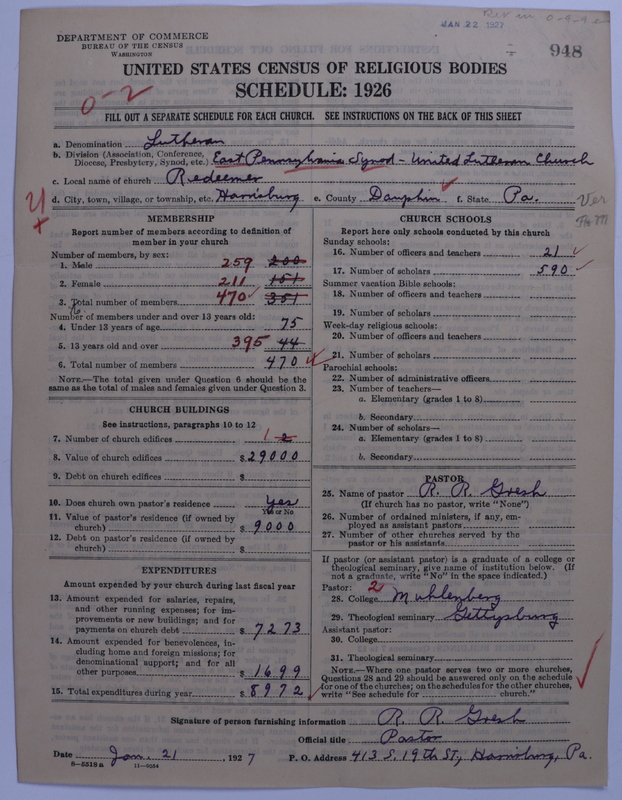 DEPARTMENT OF COMMERCE
BUREAU OF THE CENSUS
WASHINGTON
JAN 22 1927
948
UNITED STATES CENSUS OF RELIGIOUS BODIES
SCHEDULE: 1926
0-2
FILL OUT A SEPARATE SCHEDULE FOR EACH CHURCH. SEE INSTRUCTIONS ON THE BACK OF THIS SHEET
a. Denomination Lutheran
b. Division (Association, Conference, Diocese, Presbytery, Synod, etc.) East Pennsylvania Synod - United Lutheran Church
c. Local name of church Redeemer
d. City, town, village, or township, etc. Harrisburg e. County Dauphin f. State Pa.
MEMBERSHIP
Report number of members according to definition of
member in your church
Number of members, by sex:
1. Male 259 200
2. Female 211 151
3. Total number of members 470 351
Number of members under and over 13 years old:
4. Under 13 years of age 75
5. 13 years old and over 395 44
6. Total number of members 470
NOTE.—The total given under Question 6 should be
same as the total of males and females given under Question 3.
CHURCH BUILDINGS
See instructions, paragraphs 10 to 12
7. Number of church edifices 1 2
8. Value of church edifices $ 29000
9. Debt on church edifices $
10. Does church own pastor's residence Yes
Yes or No
11. Value of pastor's residence (if owned by
church) $ 9000
12. Debt on pastor's residence (if owned by
church) $
EXPENDITURES
Amount expended by your church during last fiscal year
13. Amount expended for salaries, repairs,
and other running expenses; for im-
provements or new buildings; and for
payments on church debt $ 7273
14. Amount expended for benevolences, in-
cluding home and foreign missions; for
denominational support; and for all
other purposes $ 1699
15. Total expenditures during year $ 8972
CHURCH SCHOOLS
Report here only schools conducted by this church
Sunday schools:
16. Number of officers and teachers 21
17. Number of scholars 590
Summer vacation Bible schools:
18. Number of officers and teachers
19. Number of scholars
Week-day religious schools:
20. Number of officers and teachers
21. Number of scholars
Parochial schools:
22. Number of administrative officers
23. Number of teachers—
a. Elementary (grades 1 to 8)
b. Secondary
24. Number of scholars—
a. Elementary (grades 1 to 8)
b. Secondary
PASTOR
25. Name of pastor R. R. Gresh
(If church has no pastor, write "None")
26. Number of ordained ministers, if any, em-
ployed as assistant pastors
27. Number of other churches served by the
pastor or his assistants
If pastor (or assistant pastor) is a graduate of a college or
theological seminary, give name of institution below. (If
not a graduate, write "No" in the space indicated.)
Pastor: 2
28. College Muhlenberg
29. Theological seminary Gettysburg
Assistant pastor:
30. College
31. Theological seminary
NOTE.—Where one pastor serves two or more churches,
Questions 28 and 29 should be answered only on the schedule
for one of the churches; on the schedules for the other churches,
write "See schedule for church."
Signature of person furnishing information R. R. Gresh
Official title: Pastor
Date Jan. 21, 1927 P. O. Address 413 S. 19th St, Harrisburg, Pa.
8-5518a 11-9054